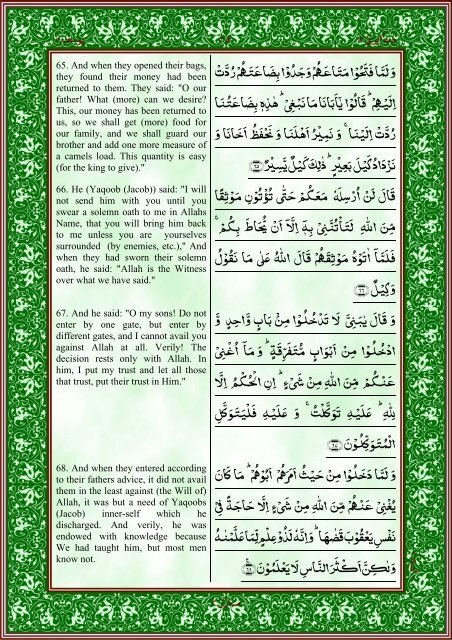 65. And when they opened their bags,
they found their money had been
returned to them. They said: "O our
father! What (more) can we desire?
This, our money has been returned to
us, so we shall get (more) food for
our family, and we shall guard our
brother and add one more measure of
a camels load. This quantity is easy
(for the king to give)."
66. He (Yaqoob (Jacob)) said: "I will
not send him with you until you
swear a solemn oath to me in Allahs
Name, that you will bring him back
to me unless you are yourselves
surrounded (by enemies, etc.)," And
when they had sworn their solemn
oath, he said: "Allah is the Witness
over what we have said."
67. And he said: "O my sons! Do not
enter by one gate, but enter by
different gates, and I cannot avail you
against Allah at all. Verily! The
decision rests only with Allah. In
him, I put my trust and let all those
that trust, put their trust in Him."
68. And when they entered according
to their fathers advice, it did not avail
them in the least against (the Will of)
Allah, it was but a need of Yaqoobs
(Jacob) inner-self which he
discharged. And verily, he was
endowed with knowledge because
We had taught him, but most men
know not.
وَلَمَّا فَتَحُوْا مَتَاعَهُمْ وَجَدُوْا بِضَاعَتَهُمْ رُدَّتْ
اِلَيْهِمْ ؕ قَالُوْا يٰۤاَبَانَا مَا نَبْغِىْ ؕ هٰذِهٖ بِضَاعَتُنَا
رُدَّتْ اِلَيْنَا ۚ وَ نَمِيْرُ اَهْلَنَا وَ نَحْفَظُ اَخَانَا وَ
نَزْدَادُ كَيْلَ بَعِيْرٍ ؕ ذٰلِكَ كَيْلٌ يَّسِيْرٌ ۝۶۵
قَالَ لَنْ اُرْسِلَهٗ مَعَكُمْ حَتّٰى تُؤْتُوْنِ مَوْثِقًا
مِّنَ اللّٰهِ لَتَاْتُنَّنِىْ بِهٖۤ اِلَّاۤ اَنْ يُّحَاطَ بِكُمْ ۚ
فَلَمَّاۤ اٰتَوْهُ مَوْثِقَهُمْ قَالَ اللّٰهُ عَلٰى مَا نَقُوْلُ
وَكِيْلٌ ۝۶۶
وَ قَالَ يٰبَنِىَّ لَا تَدْخُلُوْا مِنْۢ بَابٍ وَّاحِدٍ وَّ
ادْخُلُوْا مِنْ اَبْوَابٍ مُّتَفَرِّقَةٍ ؕ وَ مَاۤ اُغْنِىْ
عَنْكُمْ مِّنَ اللّٰهِ مِنْ شَىْءٍ ؕ اِنِ الْحُكْمُ اِلَّا
لِلّٰهِ ؕ عَلَيْهِ تَوَكَّلْتُ ۚ وَ عَلَيْهِ فَلْيَتَوَكَّلِ
الْمُتَوَكِّلُوْنَ ۝۶۷
وَ لَمَّا دَخَلُوْا مِنْ حَيْثُ اَمَرَهُمْ اَبُوْهُمْ ؕ مَا كَانَ
يُغْنِىْ عَنْهُمْ مِّنَ اللّٰهِ مِنْ شَىْءٍ اِلَّا حَاجَةً فِىْ
نَفْسِ يَعْقُوْبَ قَضٰىهَا ؕ وَ اِنَّهٗ لَذُوْ عِلْمٍ لِّمَا عَلَّمْنٰهُ
وَلٰكِنَّ اَكْثَرَ النَّاسِ لَا يَعْلَمُوْنَ ۝۶۸